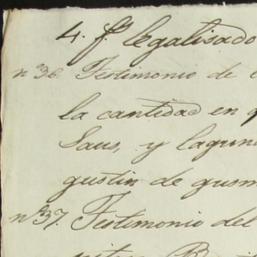 4. f.º legalisado
nº 36. Testimonio de
la cantidad en
Saus, y lagun
gustin de gusm
nº 37. Testimonio del